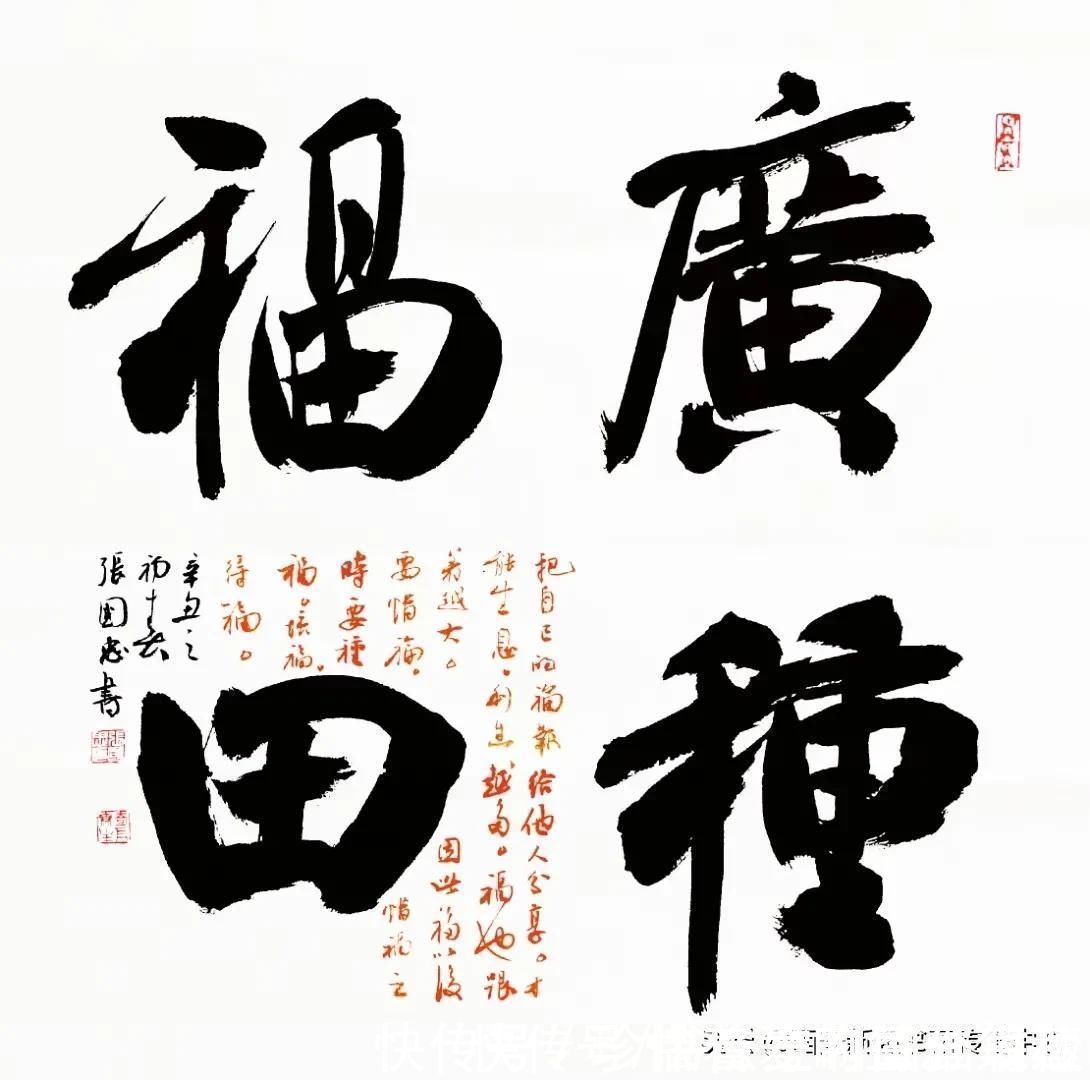 廣種
福田
把自己的福報给他人分享。才
能生息，利息越多。福也跟
着越大。因此福以後
要惜福。惜福之
時要種
福。培福。
得福。
辛丑之
初
張國忠書
快传号